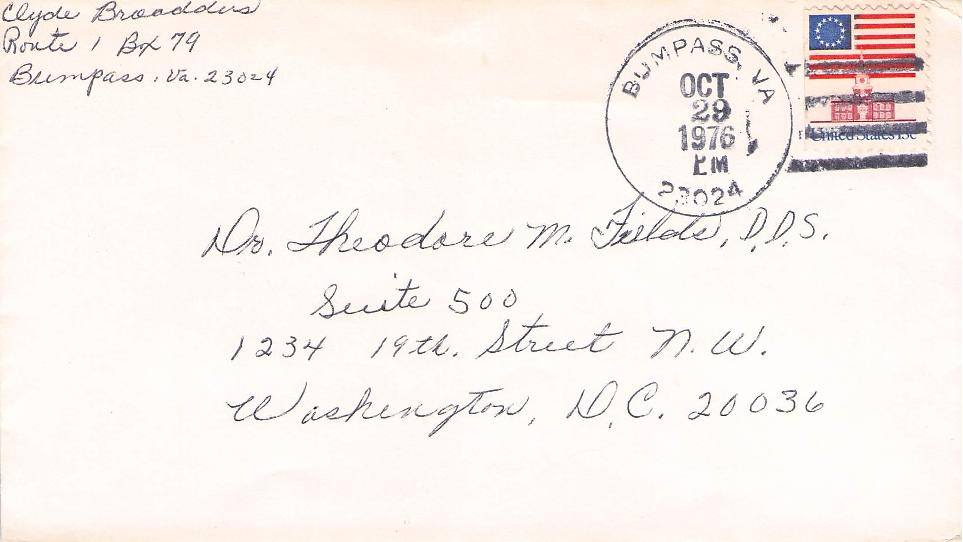 Clyde Broaddus
Route 1 Bx 79
Bumpass, Va. 23024
BUMPASS, VA
OCT
29
1976
PM
23024
United States 13c
Dr. Theodore M. Fields, D.D.S.
Suite 500
1234 19th. Street N.W.
Washington, D.C. 20036